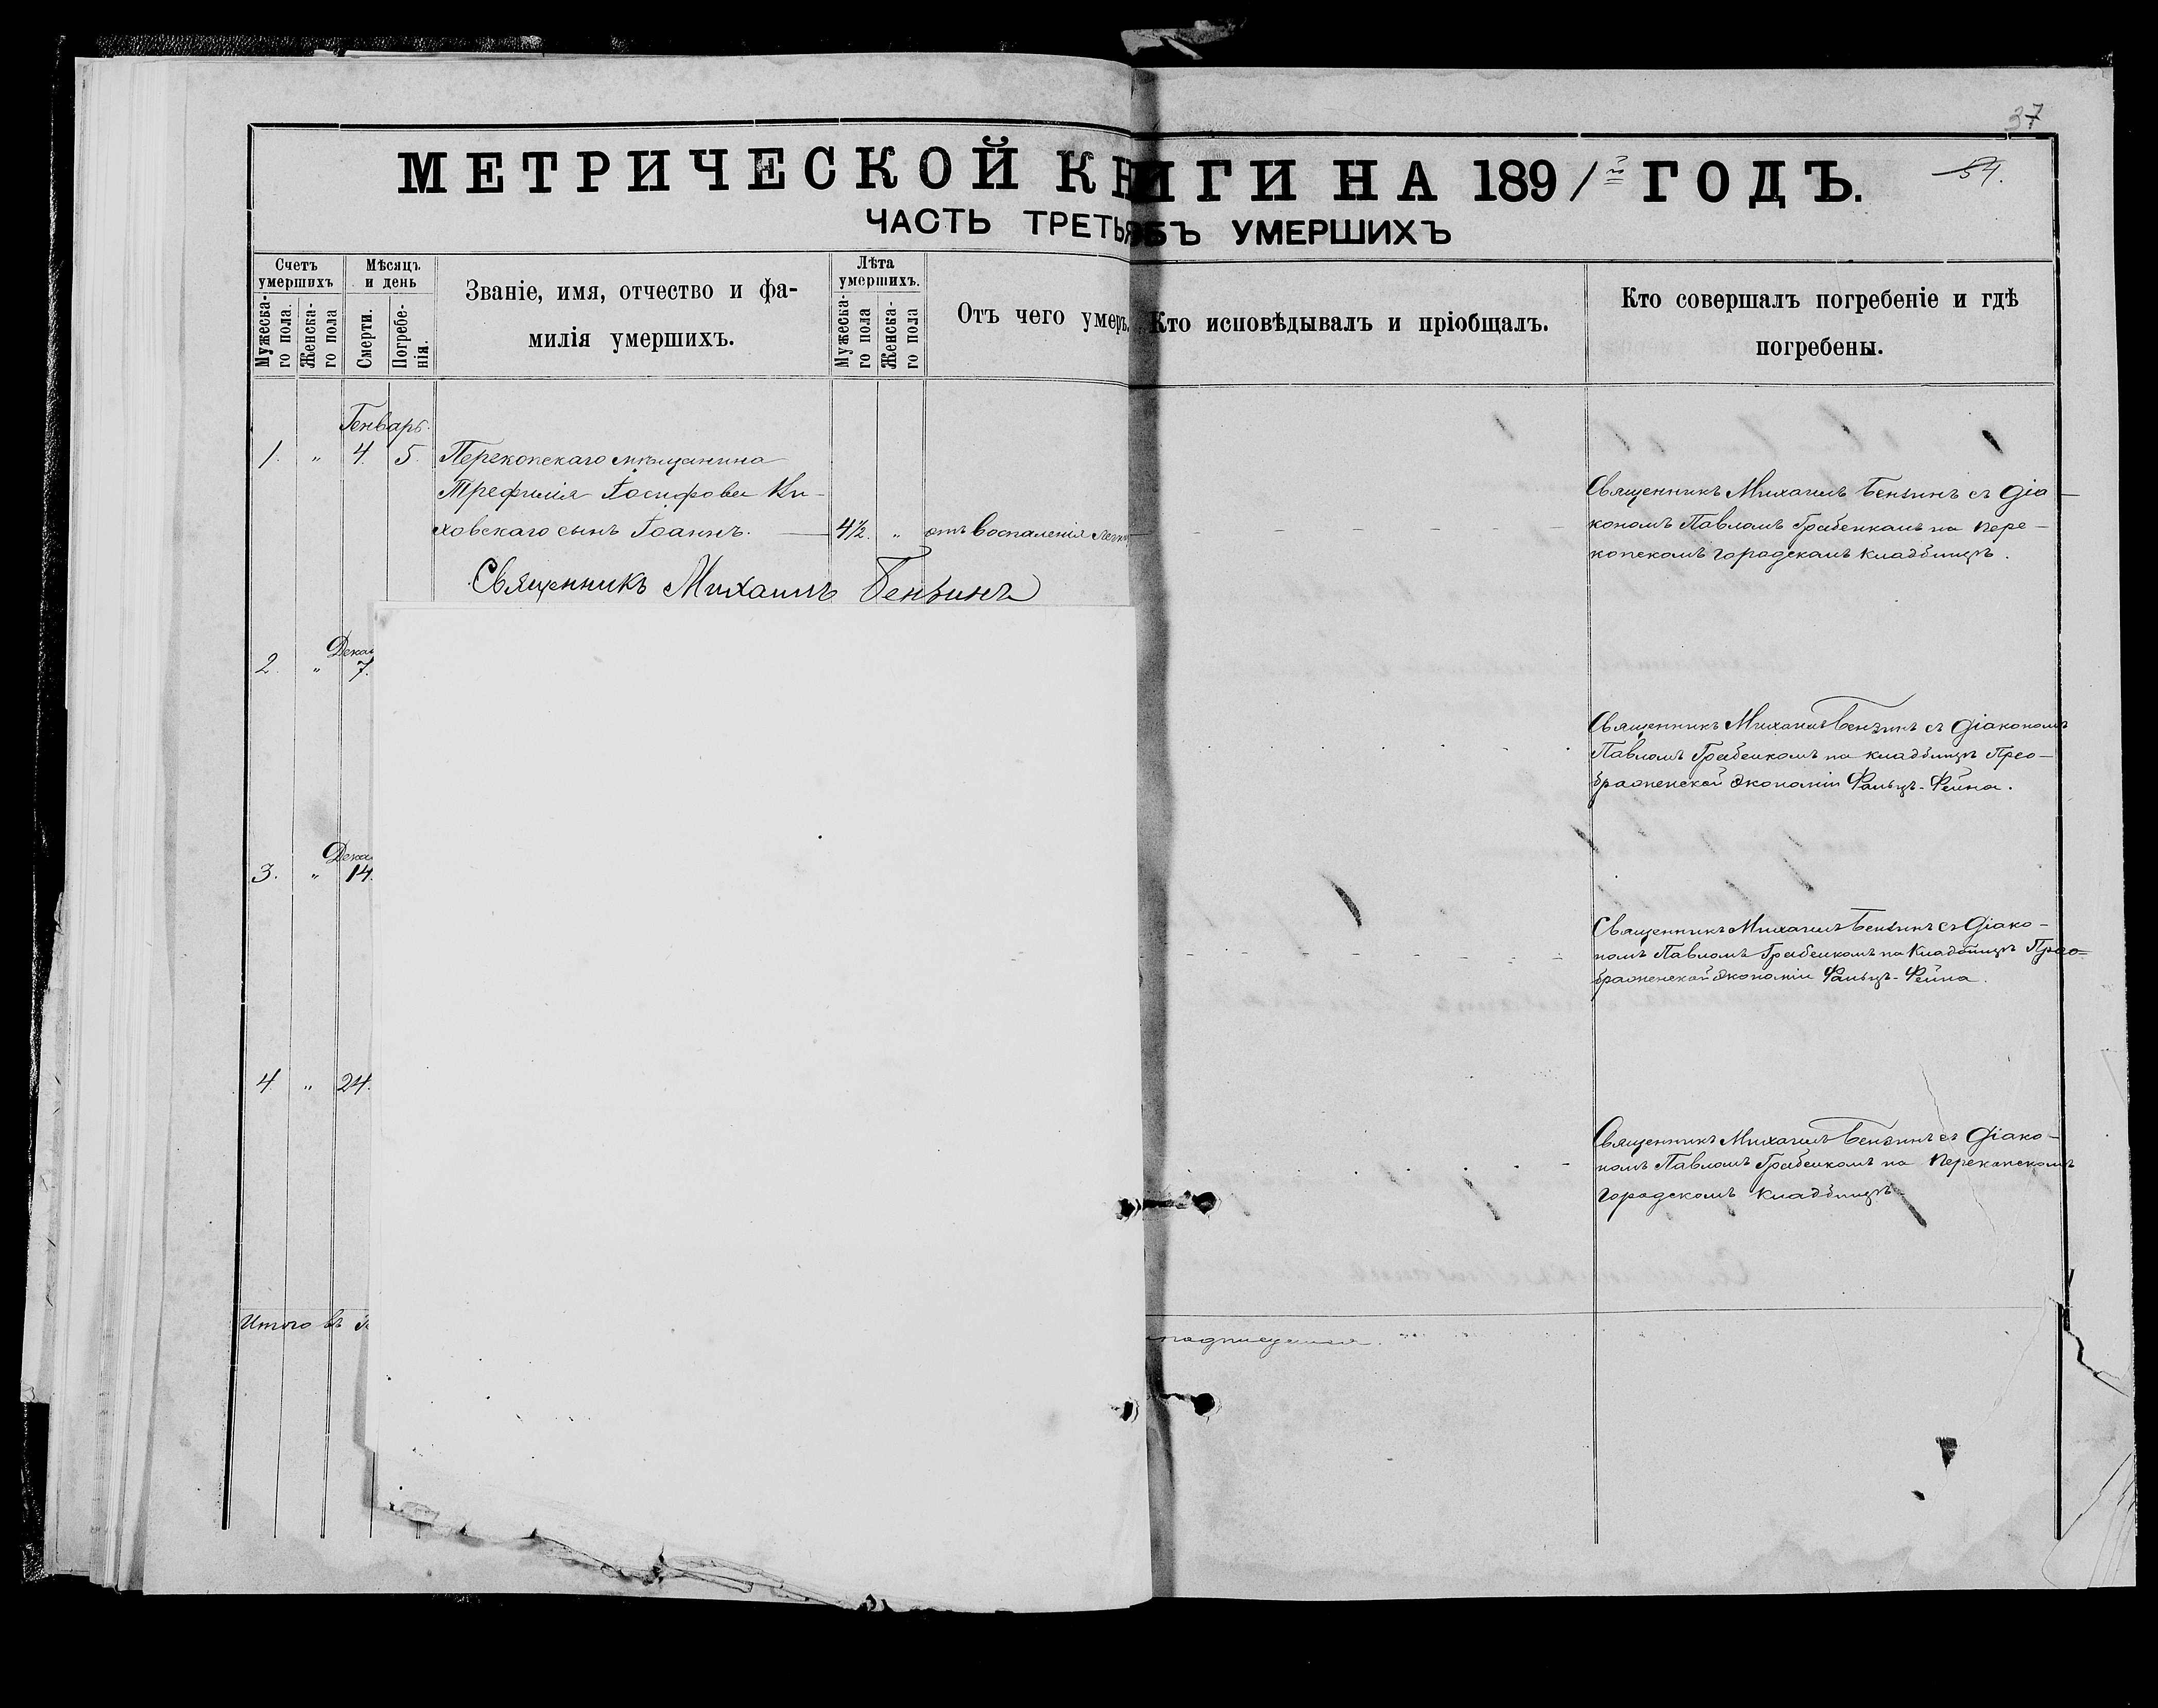 37
54.
МЕТРИЧЕСКОЙ КНИГИ НА 1891 ГОДЪ.
ЧАСТЬ ТРЕТЬЯ ОБЪ УМЕРШИХЪ
Счетъ умершихъ
Мужеска-го пола.
Женска-го пола
Мѣсяцъ и день
Смерти.
Погребе-нія.
Званіе, имя, отчество и фа-
милія умершихъ.
Лѣта умершихъ.
Мужеска-го пола
Женска-го пола
Отъ чего умеръ.
Кто исповѣдывалъ и пріобщалъ.
Кто совершалъ погребеніе и гдѣ
погребены.
Генварь
1. " 4. 5. Перекопскаго мѣщанина
Трефилія Іосифова Ки-
ховскаго сынъ Іоаннъ. 4½. " отъ воспаленія
Священникъ Михаилъ Бензинъ съ діа-
кономъ Павломъ Грабенкомъ на Пере-
копскомъ городскомъ кладбищѣ.
Священникъ Михаилъ Бензинъ
Дека
2. " 7.
Священникъ Михаилъ Бензинъ съ діакономъ
Павломъ Грабенкомъ на кладбищѣ Прео-
браженской экономіи Фальцъ-Фейна.
Дека
3. " 14.
Священникъ Михаилъ Бензинъ съ діако-
номъ Павломъ Грабенкомъ на кладбищѣ Прео-
браженской экономіи Фальцъ-Фейна.
4 " 24.
Священникъ Михаилъ Бензинъ съ діако-
номъ Павломъ Грабенкомъ на Перекопскомъ
городскомъ кладбищѣ
Итого въ